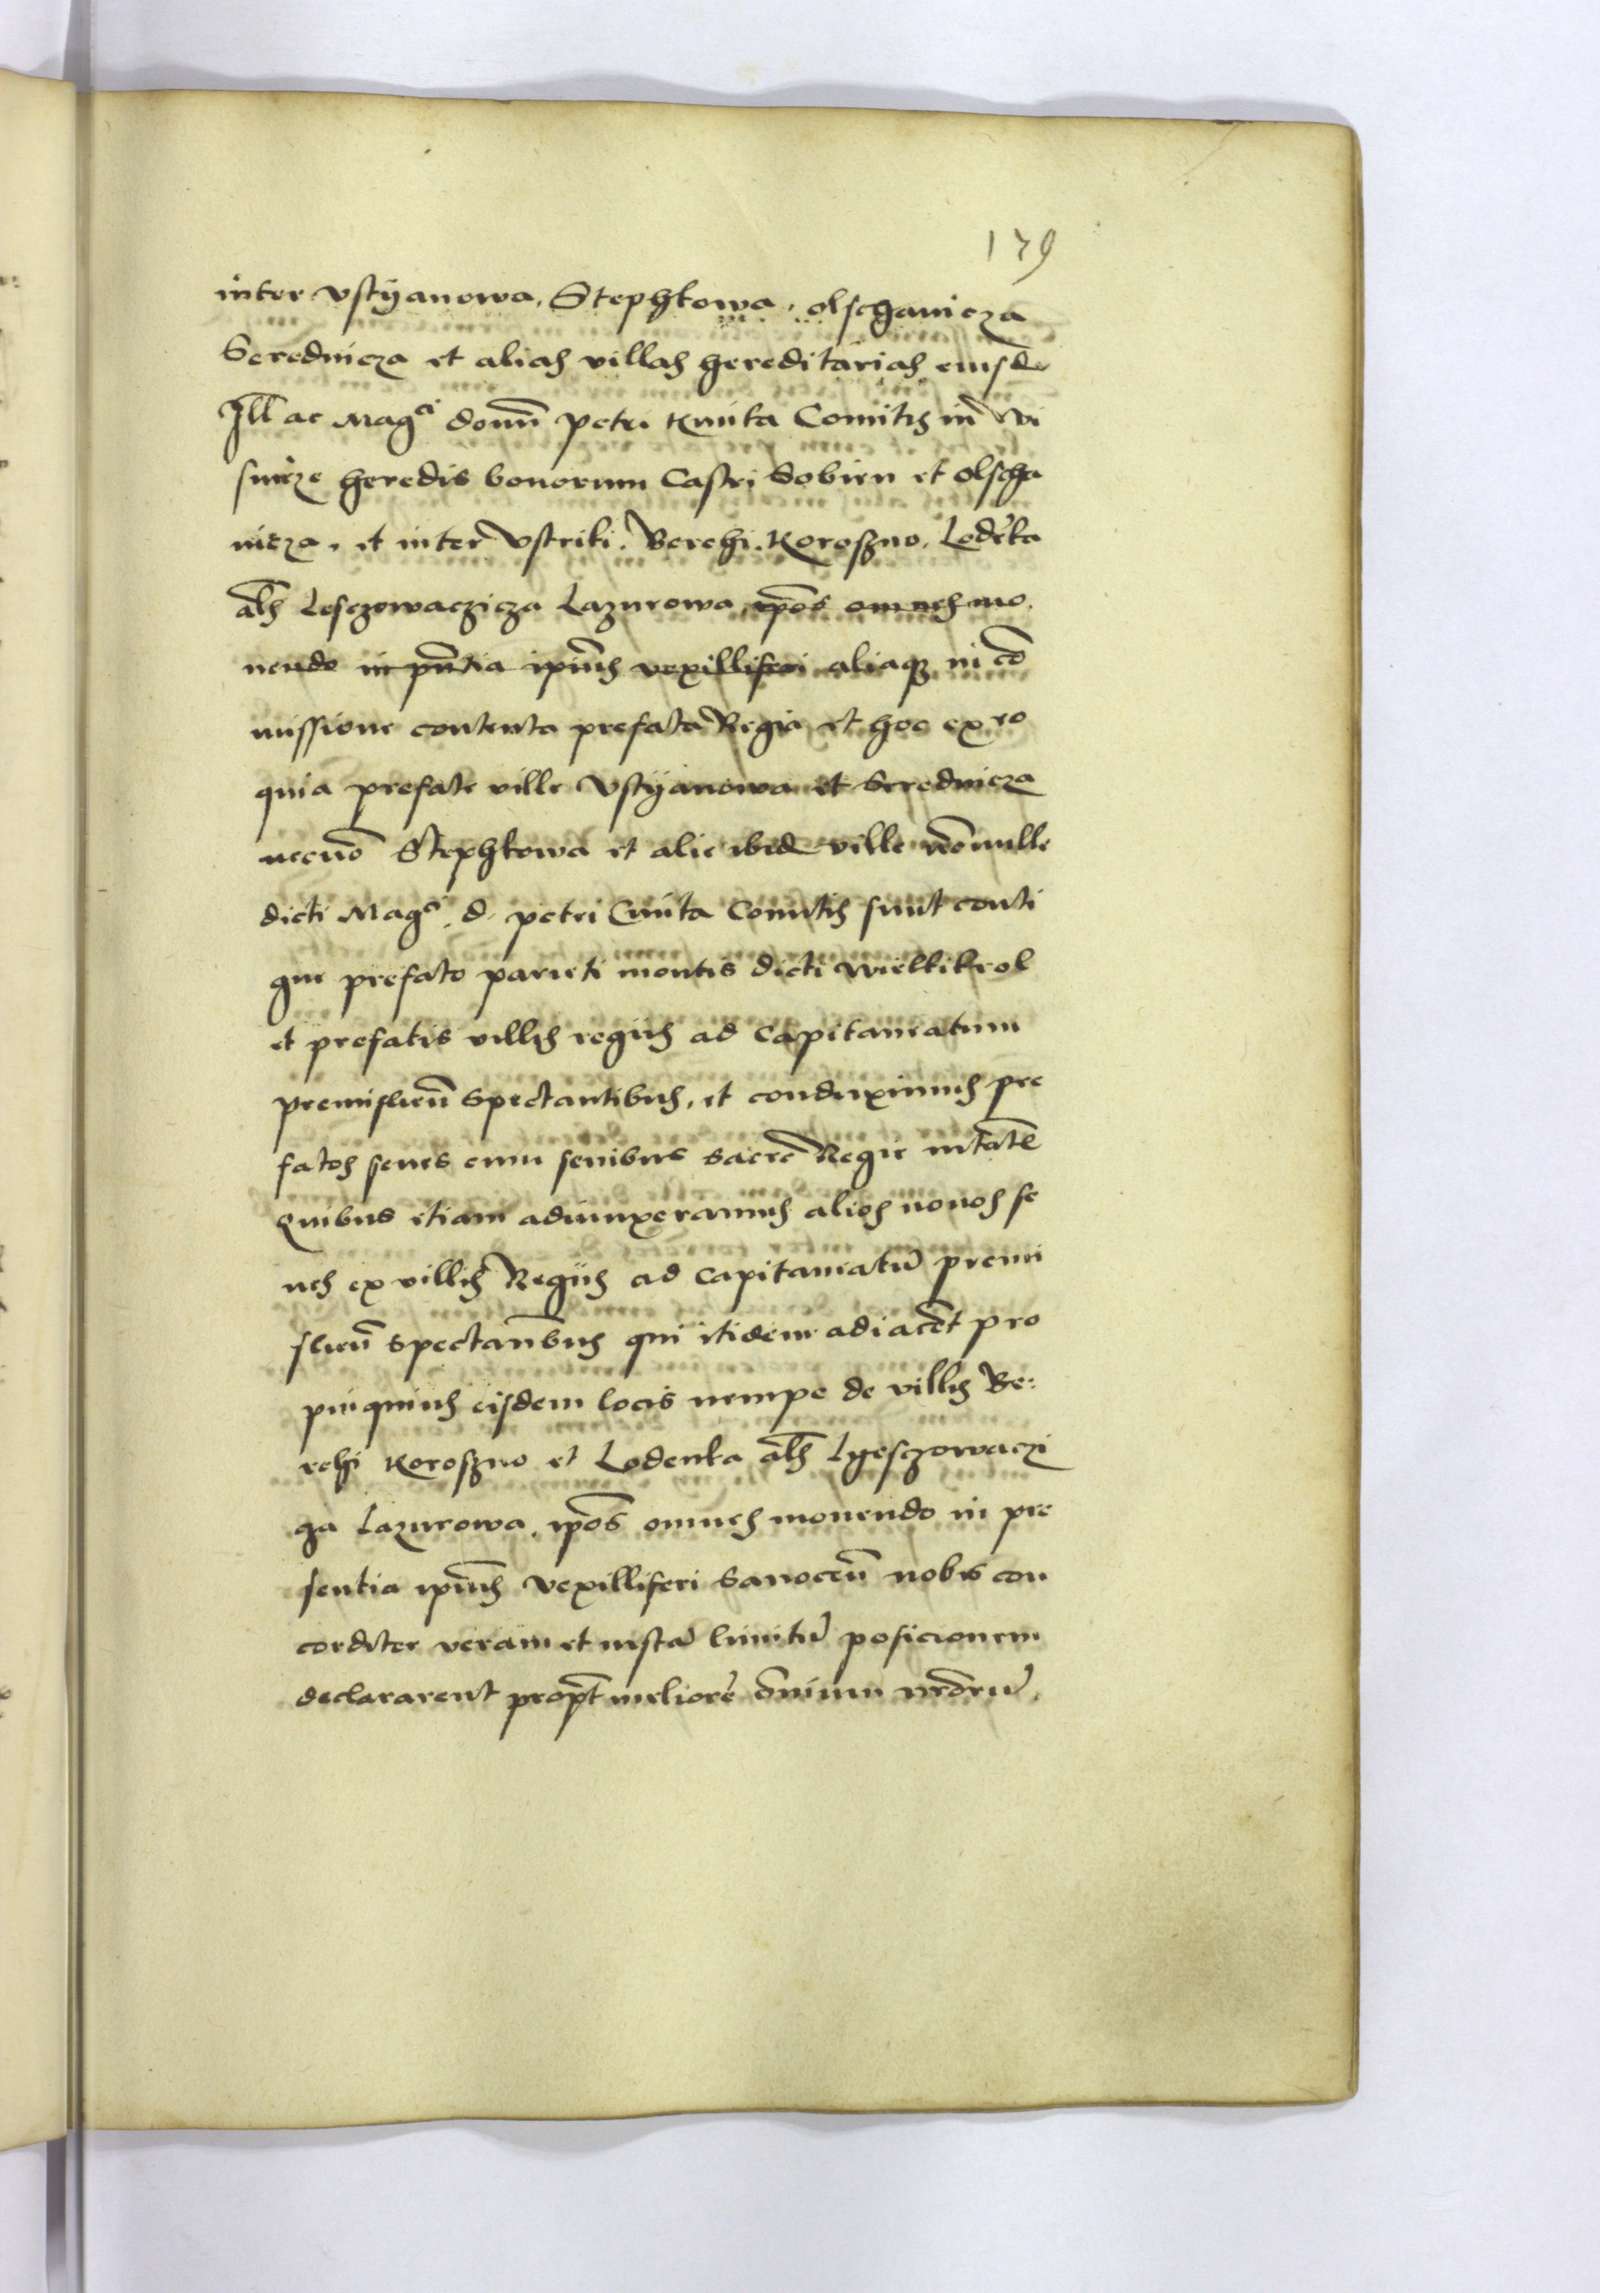 179
inter Vstÿanowa, Stephkowa, olschanicza
Serednicza et alias villas hereditarias eiusdē
Ill ac Magci domī petri Kmita Comitis in Wi
snicze heredis bonorum Castri Sobien et Olscha
nicza, et inter Vstriki, Berehi, Koroszno, Lodēka
als Lesczowaczicza Lazurowa, ipos omnes mo
nendo in pntia ipius vexilliferi aliaq in cō
missione contenta prefata Regia et hoc ex eo
quia prefate ville Vstÿanowa et Serednicza
necnō Stephkowa et alie ibidē ville nōnulle
dicti Magci d petri Cmita Comitis sunt conti
gue prefato parieti montis dicti Wielkikrol
et prefatis villis regiis ad Capitaneatum
premislieñ spectantibus, et conduximus pre
fatos senes cum senibus sacre Regie mtatē
Quibus etiam adiunxeramus alios nouos se
nes ex villis Regiis ad Capitaneatū premi
slieñ spectañbus qui itidem adiacēt pro
pinquius eisdem locis nempe de villis Be:
rehi Koroszno et Lodenka als Lyesczowaczi
ga Lazurowa, ipos omnes monendo in pre
sentia ipius Vexilliferi Sanoceñ nobis con
corditer veram et iustā limitū posicionem
declararent propt meliorē omnium nrorū